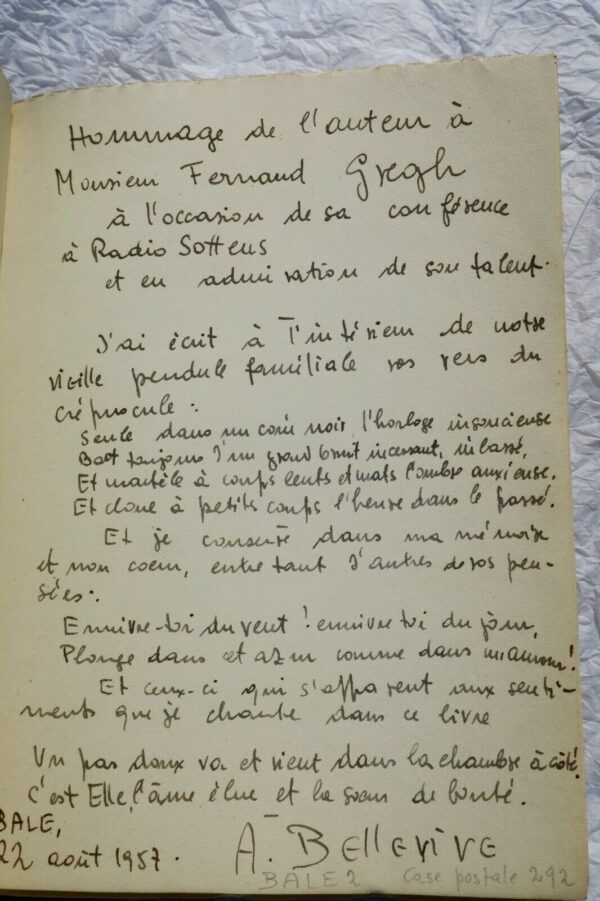 Hommage de l'auteur à
Monsieur Fernand Gregh
à l'occasion de sa conférence
à Radio Sottens
et en admiration de son talent.
J'ai écrit à l'intérieur de notre
vieille pendule familiale vos vers du
crépuscule :
Seule dans un coin noir l'horloge insoucieuse
Bat toujours d'un grand bruit incessant, inlassé,
Et martèle à coups lents et mats l'ombre anxieuse.
Et cloue à petits coups l'heure dans le passé.
Et je conserve dans ma mémoire
et mon coeur, entre tant d'autres de vos pen-
sées :
Ennivre-toi du vent ! ennivre toi du jour,
Plonge dans cet azur comme dans un amour !
Et ceux-ci qui s'apparent aux senti-
ments que je chante dans ce livre
Un pas doux va et vient dans la chambre à côté.
C'est Elle, l'âme élue et la soeur de bonté.
BALE,
22 août 1957.
A. Bellevive
BALE 2 Case postale 292